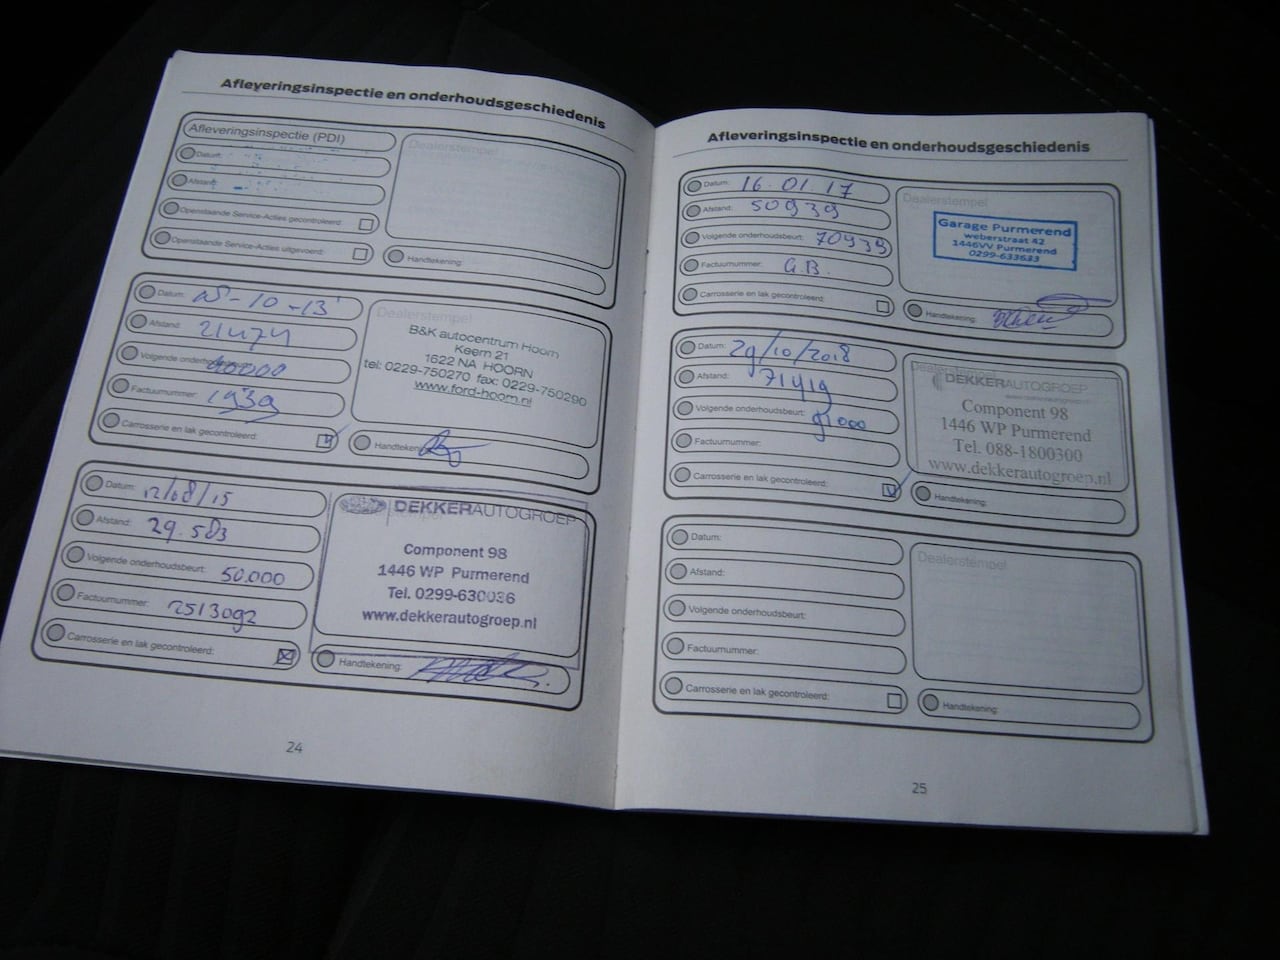 Afleveringsinspectie en onderhoudsgeschiedenis
Afleveringsinspectie (PDI)
Datum:
Afstand:
Openstaande Service-Acties gecontroleerd:
Openstaande Service-Acties uitgevoerd:
Dealerstempel
Handtekening:
Datum: -10-13
Afstand: 21474
Volgende onderhoudsbeurt: 40000
Factuurnummer: 1939
Carrosserie en lak gecontroleerd:
Dealerstempel
B&K autocentrum Hoorn
Keern 21
1622 NA HOORN
tel: 0229-750270 fax: 0229-750290
www.ford-hoorn.nl
Handtekening:
Datum: 12/08/15
Afstand: 29.583
Volgende onderhoudsbeurt: 50.000
Factuurnummer: 2513092
Carrosserie en lak gecontroleerd:
DEKKERAUTOGROEP
Component 98
1446 WP Purmerend
Tel. 0299-630036
www.dekkerautogroep.nl
Handtekening:
24
Afleveringsinspectie en onderhoudsgeschiedenis
Datum: 16.01.17
Afstand: 50939
Volgende onderhoudsbeurt: 70939
Factuurnummer: G.B.
Carrosserie en lak gecontroleerd:
Dealerstempel
Garage Purmerend
weberstraat 42
1446VV Purmerend
0299-633633
Handtekening:
Datum: 29/10/2018
Afstand: 71419
Volgende onderhoudsbeurt: 91000
Factuurnummer:
Carrosserie en lak gecontroleerd:
Dealerstempel
DEKKERAUTOGROEP
Component 98
1446 WP Purmerend
Tel. 088-1800300
www.dekkerautogroep.nl
Handtekening:
Datum:
Afstand:
Volgende onderhoudsbeurt:
Factuurnummer:
Carrosserie en lak gecontroleerd:
Dealerstempel
Handtekening:
25